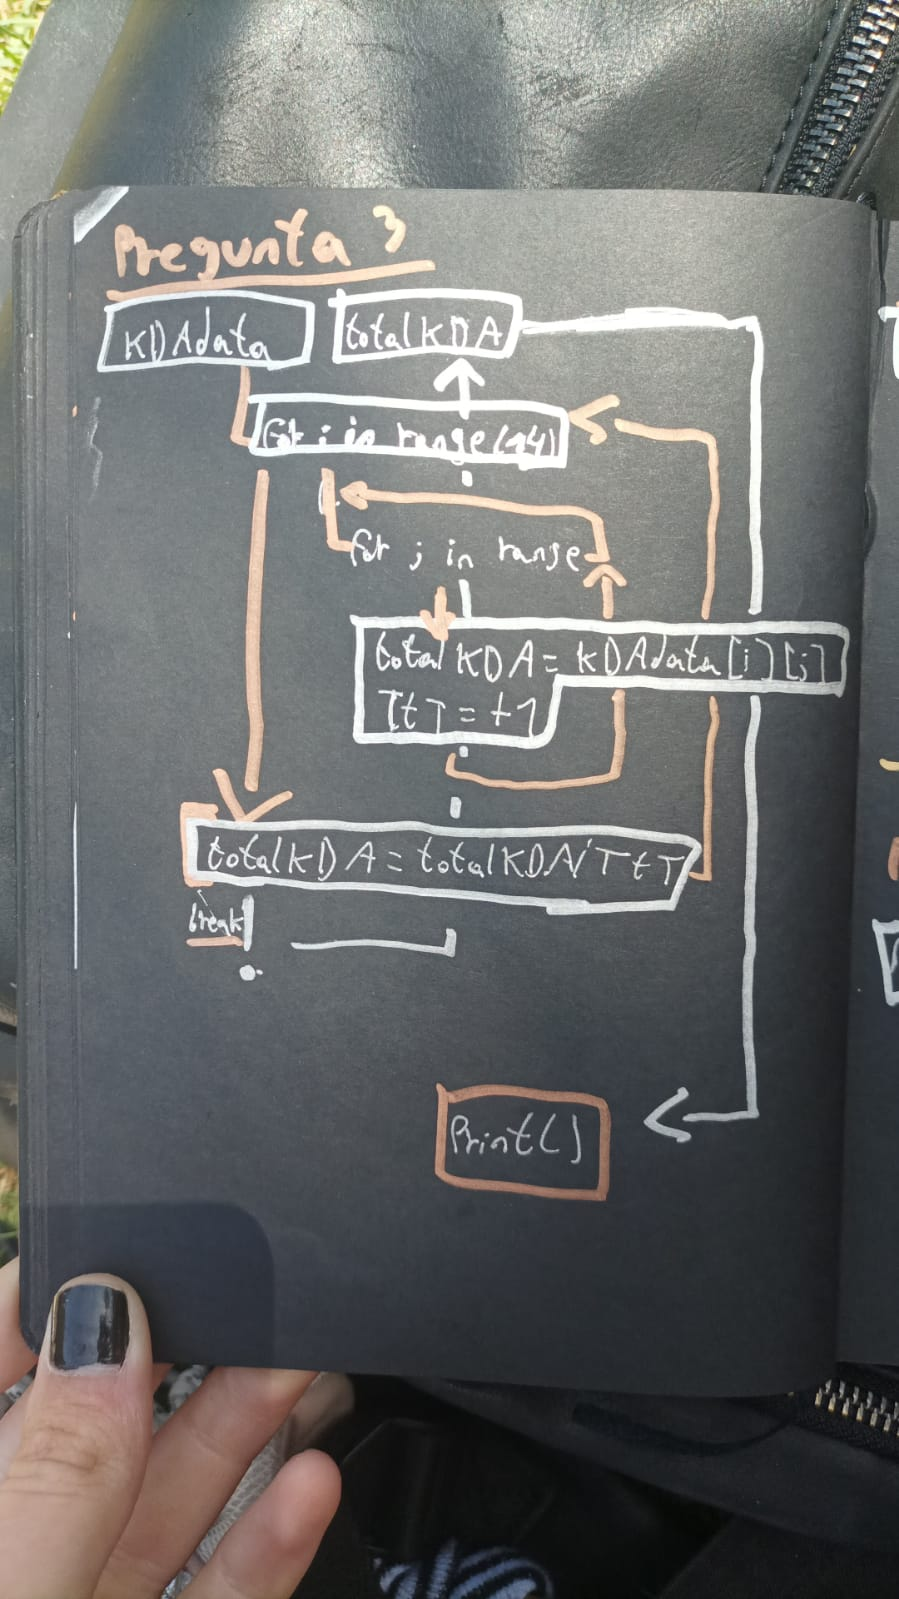 Pregunta 3
KDAdata
totalKDA
for i in range(14)
for j in range
total KDA = KDAdata[i][j]
TtT = +1
totalKDA = totalKDA/TtT
break
Print()